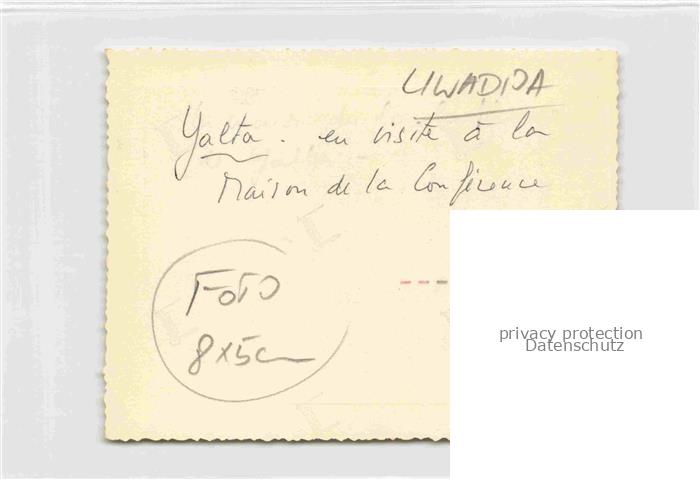 LIWADIJA
Yalta. en visite à la
Maison de la Conférence
FOTO
8x5cm
privacy protection
Datenschutz